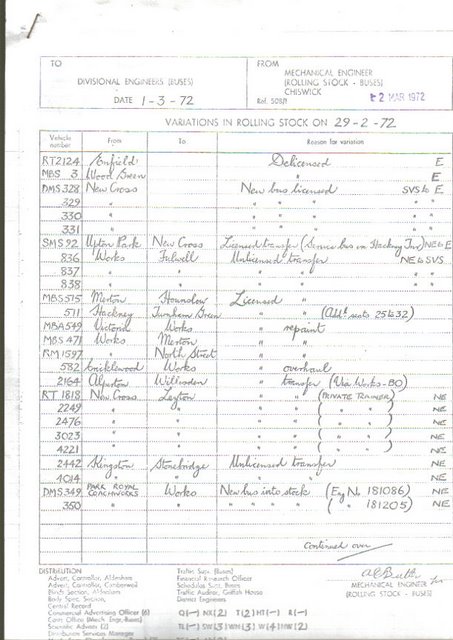 TO
FROM
DIVISIONAL ENGINEERS (BUSES)
MECHANICAL ENGINEER
(ROLLING STOCK - BUSES)
CHISWICK
DATE 1-3-72
Ref. 508/1
2 MAR 1972
VARIATIONS IN ROLLING STOCK ON 29-2-72
Vehicle number From To Reason for variation
RT2124 Enfield Delicensed E
MBS 3 Wood Green " E
DMS 328 New Cross New bus licensed SVS to E
329 " " " " "
330 " " " " "
331 " " " " "
SMS 92 Upton Park New Cross Licensed transfer (Service bus on Hackney Inv) NE to E
836 Works Fulwell Unlicensed transfer NE to SVS
837 " " " " "
838 " " " " "
MBS 515 Merton Hounslow Licensed "
511 Hackney Turnham Green " " (Addl seats 25 to 32)
MBA 549 Victoria Works " repaint
MBS 471 Works Merton " "
RM 1597 " North Street " "
582 Cricklewood Works " overhaul
2164 Alperton Willesden " transfer (Via Works-BO)
RT 1818 New Cross Leyton " " (PRIVATE TRAINER) NE
2249 " " " " ( " " ) NE
2476 " " " " ( " " ) NE
3023 " " " " ( " " ) NE
4221 " " " " ( " " ) NE
2442 Kingston Stonebridge Unlicensed transfer NE
4014 " " " " NE
DMS 349 PARK ROYAL COACHWORKS Works New bus into stock (Eng No 181086) NE
350 " " " " " " ( " 181205) NE
continued over
DISTRIBUTION
Advert. Controller, Aldenham
Advert. Controller, Camberwell
Blinds Section, Aldenham
Body Spec. Section
Central Record
Commercial Advertising Officer (6)
Cash Office (Mech. Engr.-Buses)
Scientific Adviser (2)
Distribution Services Manager
Traffic Supt. (Buses)
Financial Research Officer
Schedules Supt. Buses
Traffic Auditor, Griffith House
District Engineers
MECHANICAL ENGINEER
(ROLLING STOCK - BUSES)